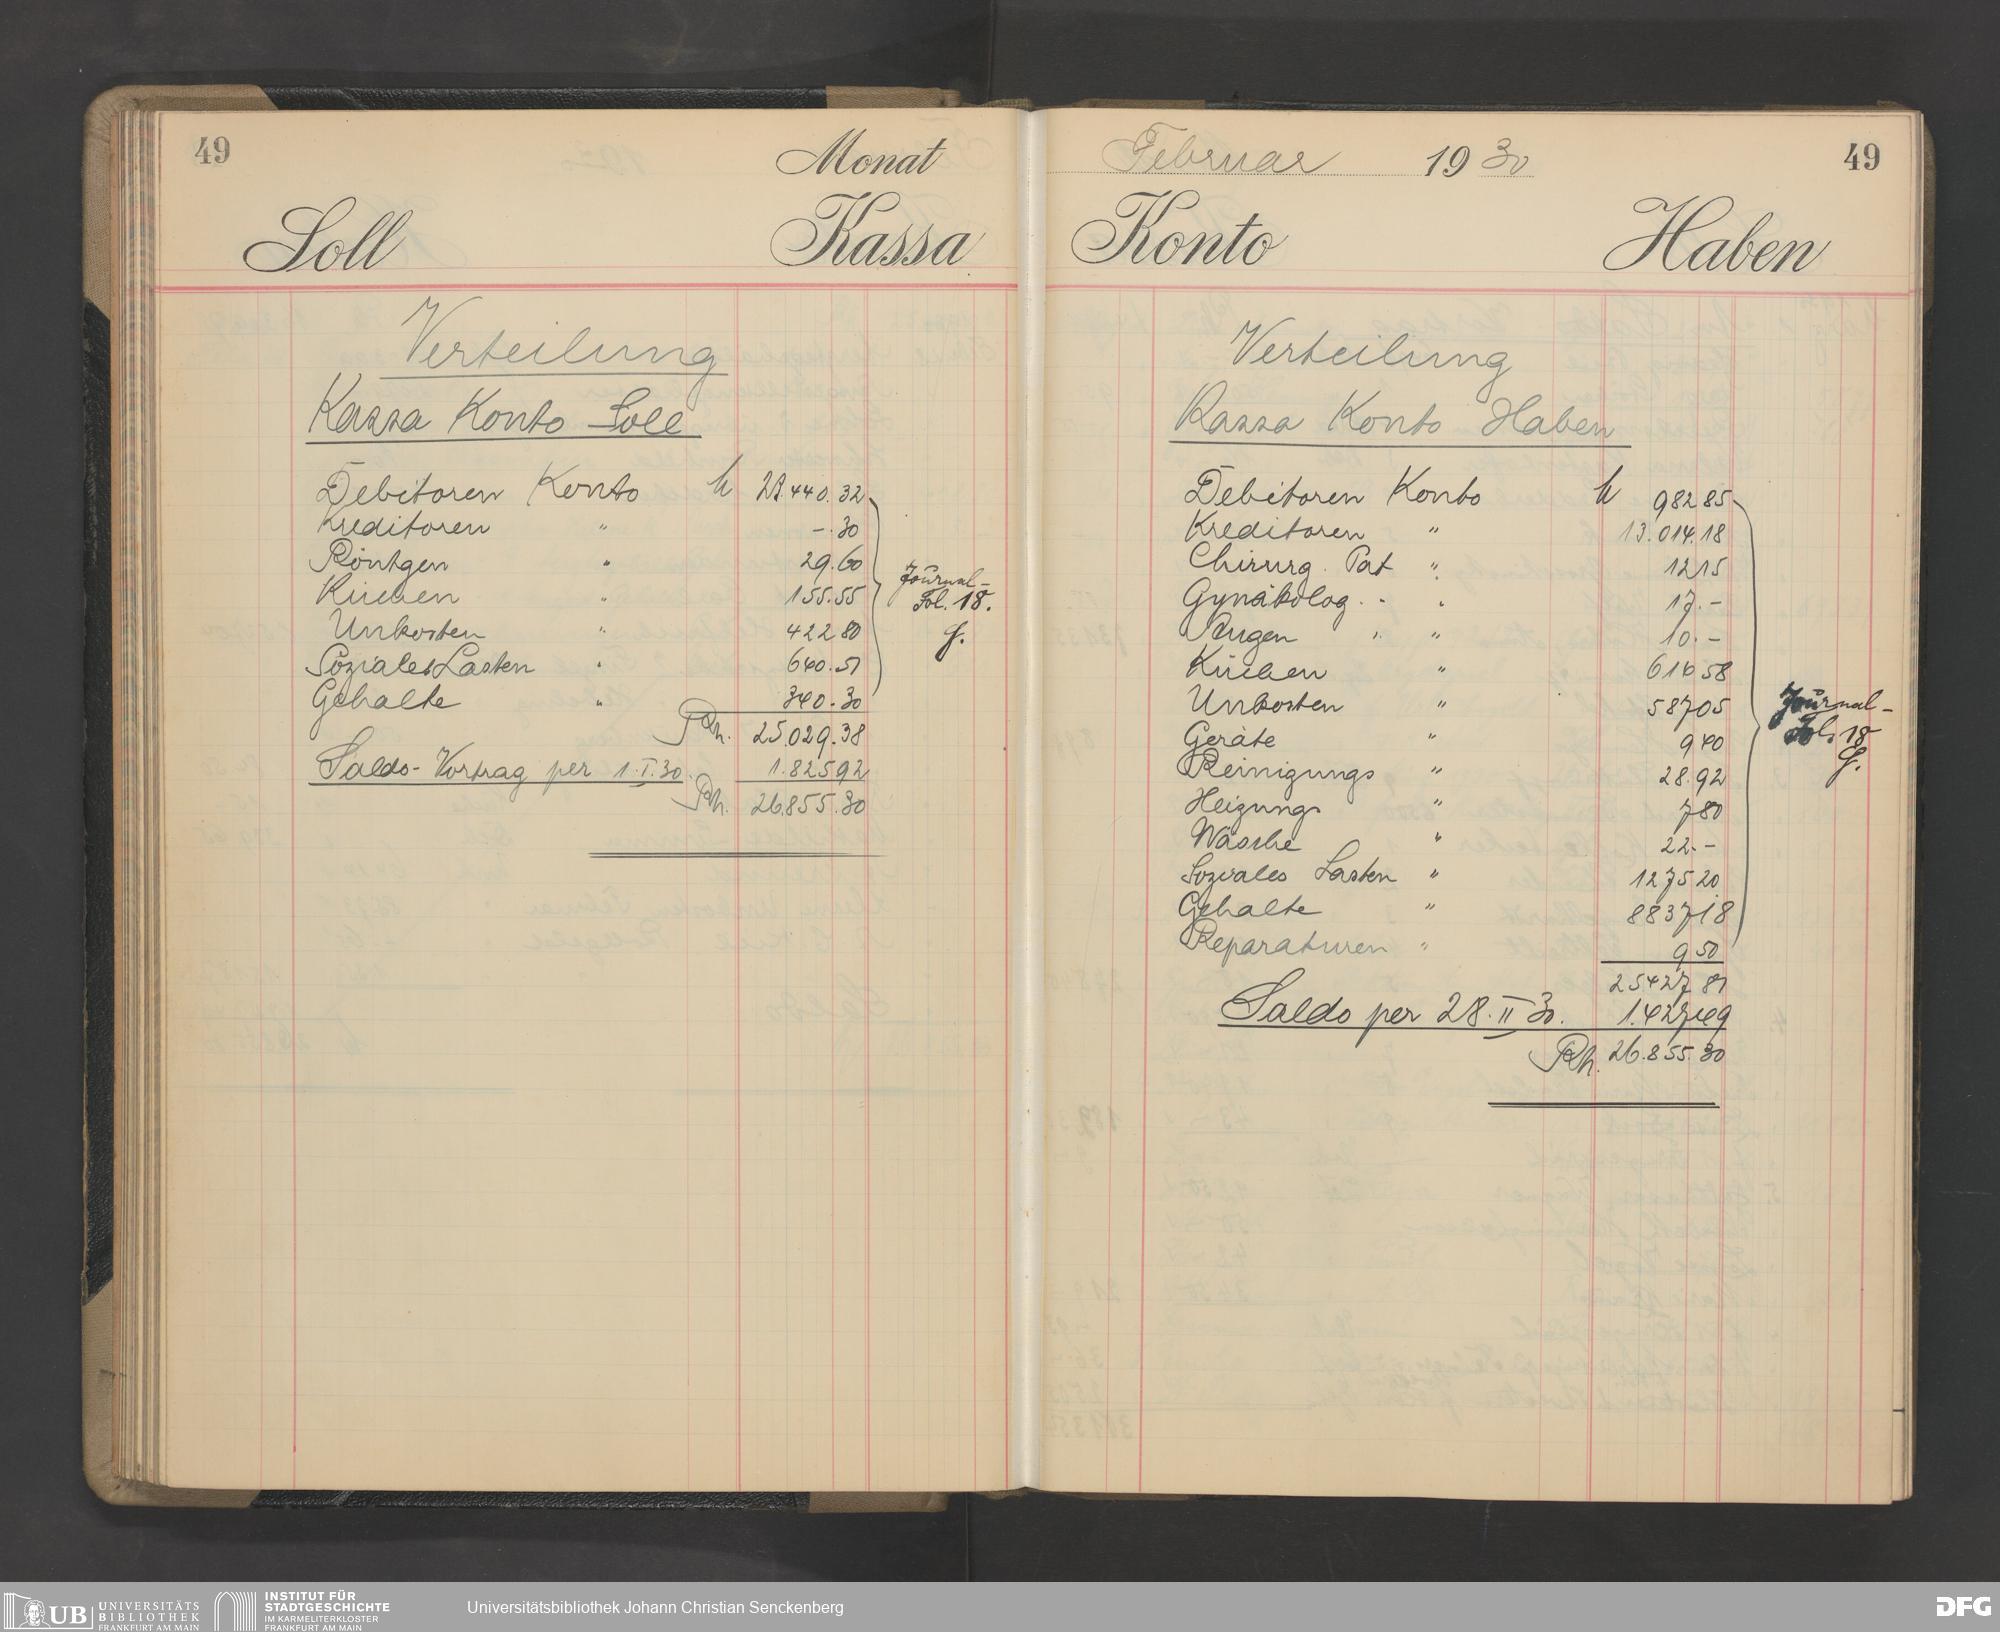 49
Monat
Soll Kassa
Verteilung
Kassa Konto Soll
Debitoren Konto M 23.440.32
Kreditoren " -.30
Röntgen " 29.60
Küchen " 155.55
Unkosten " 422 80
Soziales Lasten " 640.51
Gehalte " 340.30
Rh. 25.029.38
Saldo-Vortrag per 1.I.30. 1.825 92
Rh. 26.855.30
Journal-
Fol. 18.
Februar 1930
49
Konto Haben
Verteilung
Kassa Konto Haben
Debitoren Konto M 982 85
Kreditoren " 13.014.18
Chirurg. Pat " 12 15
Gynäkolog. " " 17.-
Augen " " 10.-
Küchen " 614 58
Unkosten " 587 05
Geräte " 9 40
Reinigungs " 28.92
Heizungs " 7 80
Wäsche " 22.-
Soziales Lasten " 1275 20
Gehalte " 8837 18
Reparaturen " 9 50
25427 81
Saldo per 28.II 30. 1.427 49
Rh. 26.855.30
Journal-
Fol. 18
UB UNIVERSITÄTS
BIBLIOTHEK
FRANKFURT AM MAIN
INSTITUT FÜR
STADTGESCHICHTE
IM KARMELITERKLOSTER
FRANKFURT AM MAIN
Universitätsbibliothek Johann Christian Senckenberg
DFG